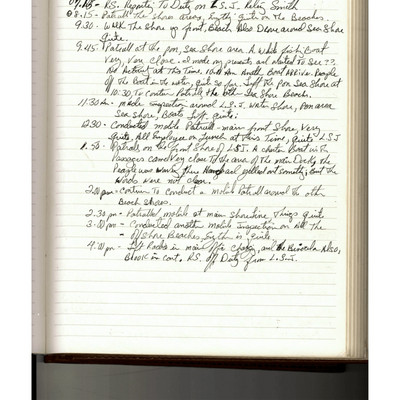 07.45 - R.S. Reporting To Duty on L.S.J. Relieve Smith
08.15 - Patroll the shore Areas, Everything quite on the Beaches
9.30 - Walk The Shore by front, Beach, Also Drove around Sea Shore
quite.
9.45 - Patroll at the pon, Sea Shore area. A white fish Boat
Very, Very close. I made my present and waited To See ??.
No Retreat at This Time, 10:15 Am Another Boat Arrive. People
off The Boat in the water, quite so far. Left the Pon Sea Shore at
10:30 To Continue Patroll the other Shore Beaches.
11:30 Am - made inspection around L.S.J. water shore, Pon area
Sea shore, Boats Left. quite.
12.30 - Conducted mobile Patroll - main front Shore, Very
quite. All Employee on Lunch at This Time, quite L.S.J.
1.50 - Patroll on the front Shore of LSJ. A charter Boat with
Passengers came Very close To the area of The main Dock, the
People was waving there Hands and yelled out something But the
Words were not clear.
2.00 pm - Continue To Conduct a mobile Patroll around the other
Beach Shores.
2.30 pm - Patrolled mobile at main shoreline Things quite
3.00 pm - Conducted another mobile Inspection on All The
- Off Shore Beaches Everything is quite
4:00 pm - Left Radio in main office charging, and the Binocular Also,
Book in Cart. R.S. off Duty from L.S.J.